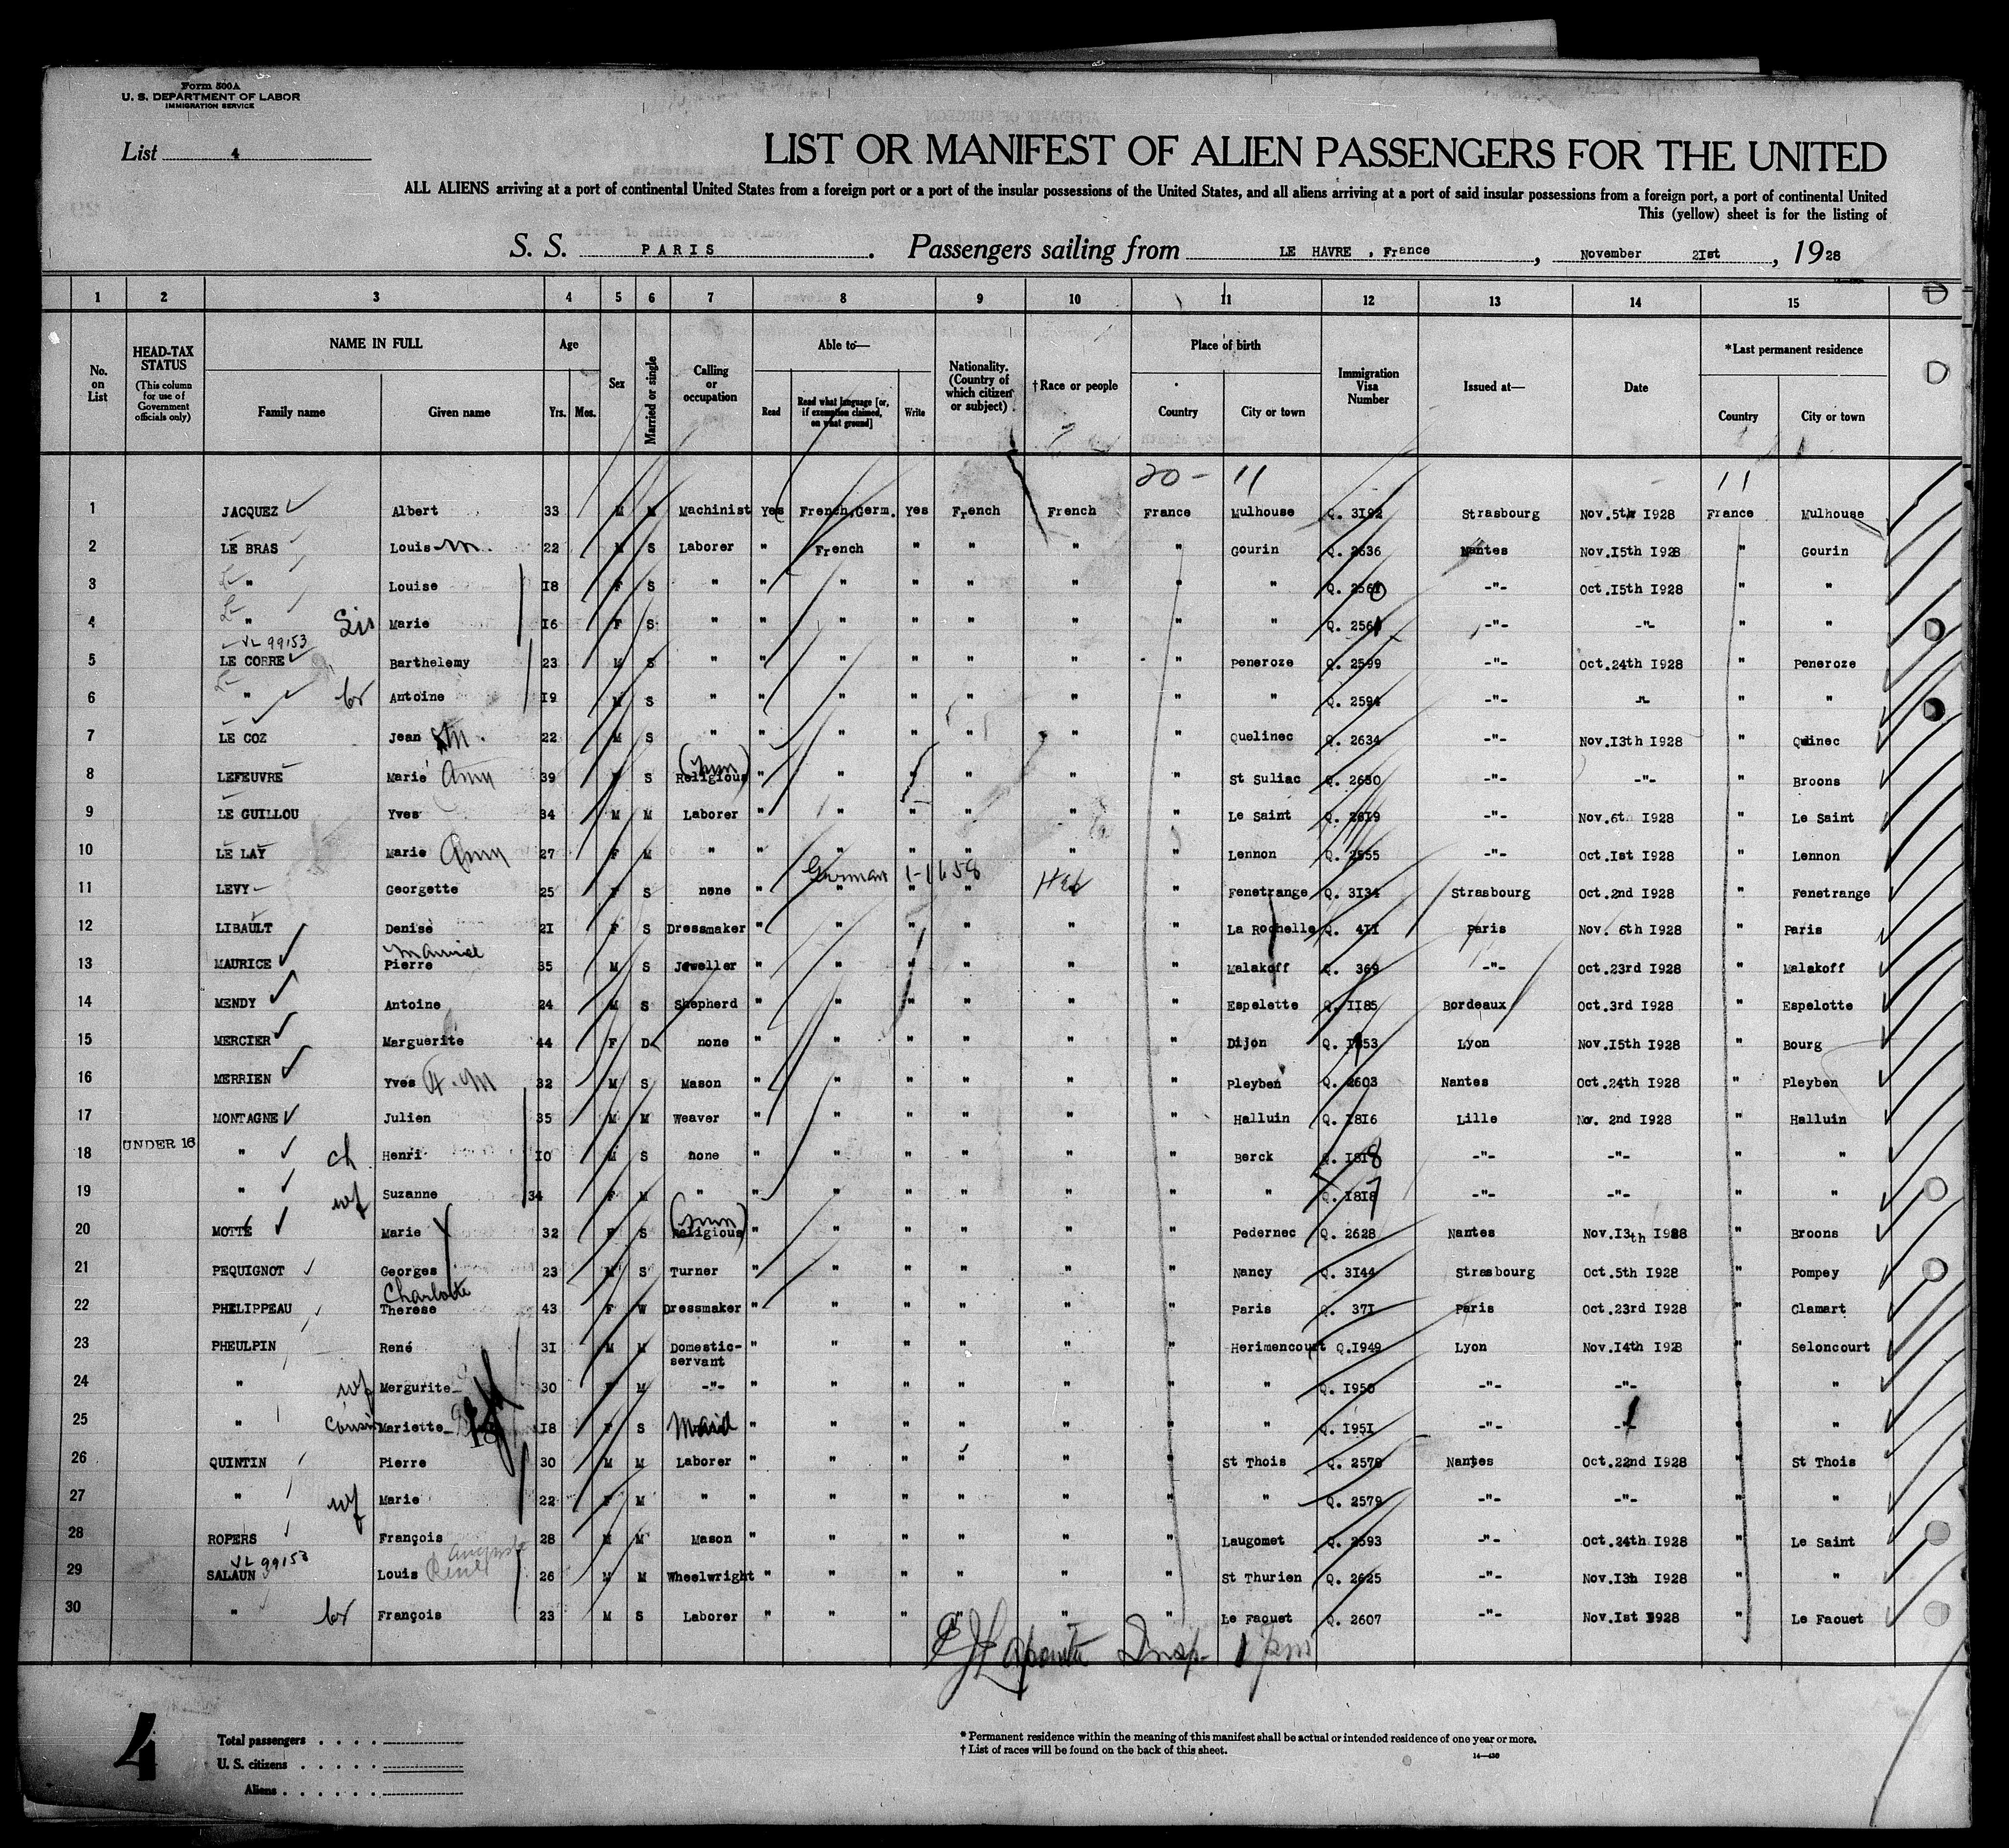 Form 500A
U. S. DEPARTMENT OF LABOR
IMMIGRATION SERVICE
List 4
LIST OR MANIFEST OF ALIEN PASSENGERS FOR THE UNITED
ALL ALIENS arriving at a port of continental United States from a foreign port or a port of the insular possessions of the United States, and all aliens arriving at a port of said insular possessions from a foreign port, a port of continental United
This (yellow) sheet is for the listing of
S. S. PARIS . Passengers sailing from LE HAVRE , France , November 2Ist , 1928
1 2 3 4 5 6 7 8 9 10 11 12 13 14 15
No. on List
HEAD-TAX STATUS (This column for use of Government officials only)
NAME IN FULL Family name Given name
Age Yrs. Mos.
Sex
Married or single
Calling or occupation
Able to— Read Read what language [or, if exemption claimed, on what ground] Write
Nationality. (Country of which citizen or subject)
†Race or people
Place of birth Country City or town
Immigration Visa Number
Issued at—
Date
*Last permanent residence Country City or town
20 - 11 11
1 JACQUEZ Albert 33 M M Machinist Yes French,Germ. Yes French French France Mulhouse Q. 3I92 Strasbourg Nov.5th I928 France Mulhouse
2 LE BRAS Louis M. 22 M S Laborer " French " " " " Gourin Q. 2636 Nantes Nov.I5th I928 " Gourin
3 " Louise I8 F S " " " " " " " " Q. 2560 -"- Oct.I5th I928 " "
4 " Sis Marie I6 F S " " " " " " " " Q. 2561 -"- -"- " "
VL 99153
5 LE CORRE Barthelemy 23 M S " " " " " " " Peneroze Q. 2599 -"- Oct.24th I928 " Peneroze
6 " br Antoine I9 M S " " " " " " " " Q. 2594 -"- -"- " "
7 LE COZ Jean M. 22 M S " " " " " " " Quelinec Q. 2634 -"- Nov.I3th I928 "
8 LEFEUVRE Marie Ann 39 F S Religious (nun) " " " " " " St Suliac Q. 2630 -"- -"- " Broons
9 LE GUILLOU Yves 34 M M Laborer " " " " " " Le Saint Q. 26I9 -"- Nov.6t I928 " Le Saint
10 LE LAY Marie Ann 27 F M " " " " " " " Lennon Q. 2555 -"- Oct.Ist I928 " Lennon
German 1-11658
11 LEVY Georgette 25 F S none " " " " Heb " Fenetrange Q. 3I34 Strasbourg Oct.2nd I928 " Fenetrange
12 LIBAULT Denise 2I F S Dressmaker " " " " " " La Rochelle Q. 4II Paris Nov. 6th I928 " Paris
13 MAURICE Pierre 35 M S Jeweller " " " " " " Malakoff Q. 369 -"- Oct.23rd I928 " Malakoff
14 MENDY Antoine 24 M S Shepherd " " " " " " Espelette Q. II85 Bordeaux Oct.3rd I928 " Espelotte
15 MERCIER Marguerite 44 F D none " " " " " " Dijon Q. I953 Lyon Nov.I5th I928 " Bourg
16 MERRIEN Yves 32 M S Mason " " " " " " Pleyben Q. 2603 Nantes Oct.24th I928 " Pleyben
17 MONTAGNE Julien 35 M M Weaver " " " " " " Halluin Q. I8I6 Lille Nov. 2nd I928 " Halluin
18 UNDER 16 " ch Henri I0 M S none " " " " " " Berck Q. I818 -"- -"- " "
19 " wf Suzanne 34 F M " " " " " " " " Q. I817 -"- -"- " "
20 MOTTE Marie Y 32 F S Religious (nun) " " " " " " Pedernec Q. 2628 Nantes Nov.I3th I928 " Broons
21 PEQUIGNOT Georges 23 M S Turner " " " " " " Nancy Q. 3I44 Strasbourg Oct.5th I928 " Pompey
Charlotte
22 PHELIPPEAU Therese 43 F W Dressmaker " " " " " " Paris Q. 37I Paris Oct.23rd I928 " Clamart
23 PHEULPIN René 3I M M Domestic-servant " " " " " " Herimencourt Q.I949 Lyon Nov.I4th I928 " Seloncourt
24 " wf Mergurite 30 F M -"- " " " " " " " Q. I950 -"- -"- " "
25 " Cousin Mariette 18 I8 F S Maid " " " " " " " Q. I95I -"- -"- " "
26 QUINTIN Pierre 30 M M Laborer " " " " " " St Thois Q. 2578 Nantes Oct.22nd I928 " St Thois
27 " wf Marie 22 F M " " " " " " " " Q. 2579 -"- -"- " "
28 ROPERS François 28 M M Mason " " " " " " Laugomet Q. 2593 -"- Oct.24th I928 " Le Saint
VL 99153
29 SALAUN Louis 26 M M Wheelwright " " " " " " St Thurien Q. 2625 -"- Nov.I3h I928 " "
30 " br François 23 M S Laborer " " " " " " Le Faouet Q. 2607 -"- Nov.Ist I928 " Le Faouet
Insp.
4
Total passengers . . . .
U. S. citizens . . . . .
Aliens . . . . . .
* Permanent residence within the meaning of this manifest shall be actual or intended residence of one year or more.
† List of races will be found on the back of this sheet.
14—430